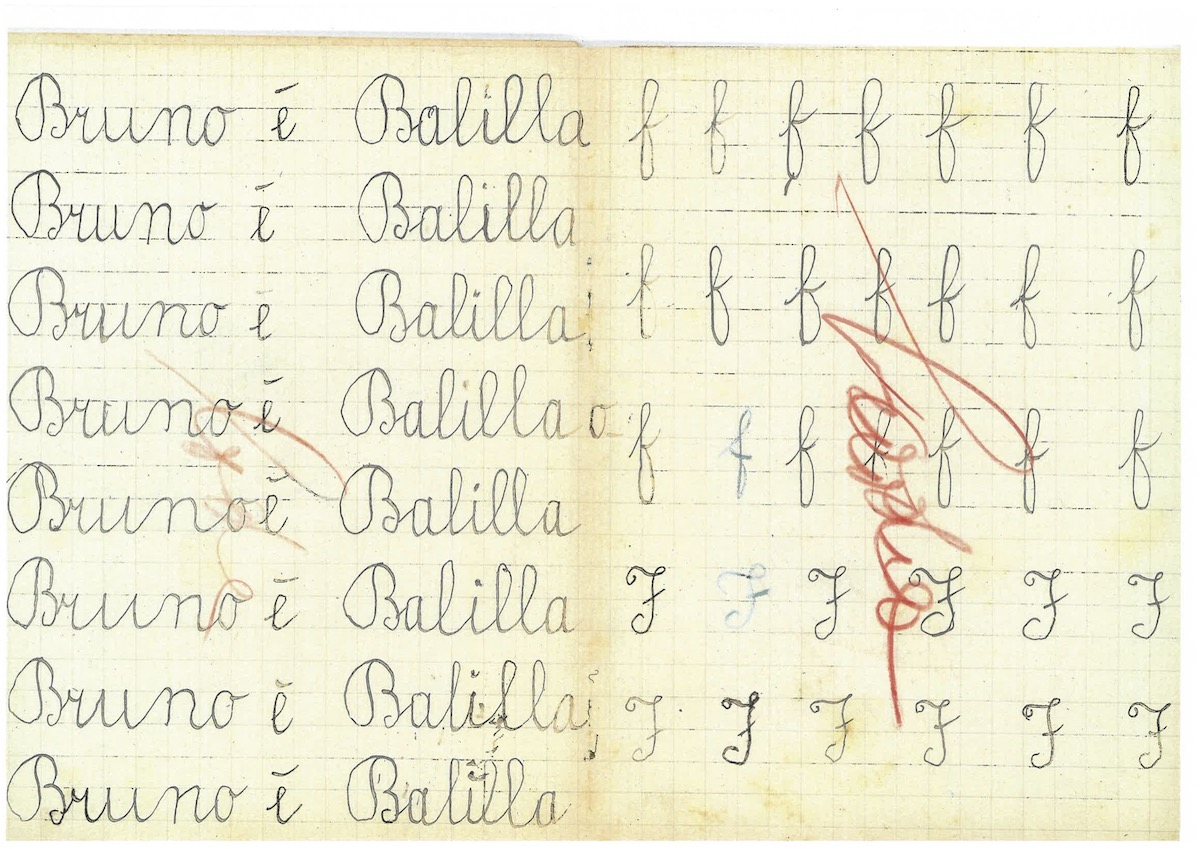 Bruno é Balilla
Bruno é Balilla
Bruno é Balilla
Bruno é Balilla o
Bruno é Balilla
Bruno é Balilla
Bruno é Balilla
Bruno é Balilla
f f f f f f f
f f f f f f f
f f f f f f f
F F F F F F
F F F F F F